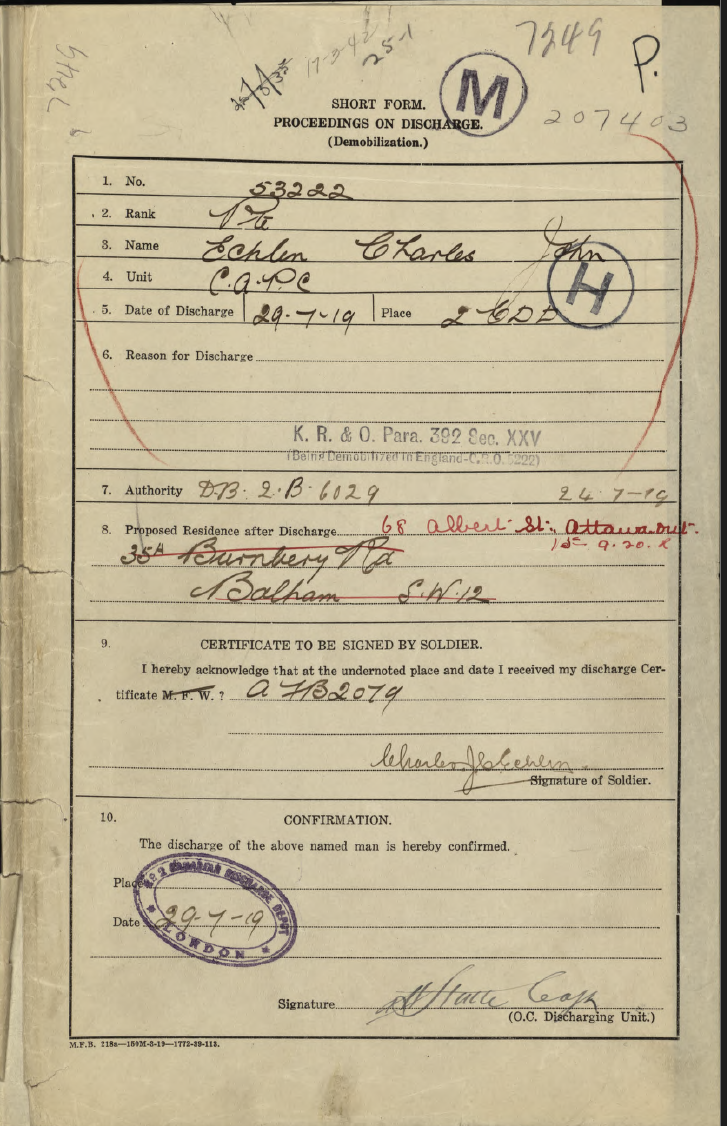 7249
17-3-42
25-1
7249
P.
M
207403
SHORT FORM.
PROCEEDINGS ON DISCHARGE.
(Demobilization.)
1. No. 53222
2. Rank Pte
3. Name Echlin Charles John
4. Unit C.A.P.C
H
5. Date of Discharge 29-7-19 Place 2 CDD
6. Reason for Discharge
K. R. & O. Para. 392 Sec. XXV
(Being Demobilized in England-C.R.O. 5222)
7. Authority DB.2.B.6029 24-7-19
8. Proposed Residence after Discharge 68 Albert St., Ottawa Ont.
9.20.
35A Burnbery Rd
Balham S.W.12
9. CERTIFICATE TO BE SIGNED BY SOLDIER.
I hereby acknowledge that at the undernoted place and date I received my discharge Cer-
tificate M. F. W. ? A FB2079
Charles J Echlin
Signature of Soldier.
10. CONFIRMATION.
The discharge of the above named man is hereby confirmed.
Place
No 2 CANADIAN DISCHARGE DEPOT
Date 29-7-19
LONDON
Signature Capt
(O.C. Discharging Unit.)
M.F.B. 218a—150M-3-19—1772-39-113.